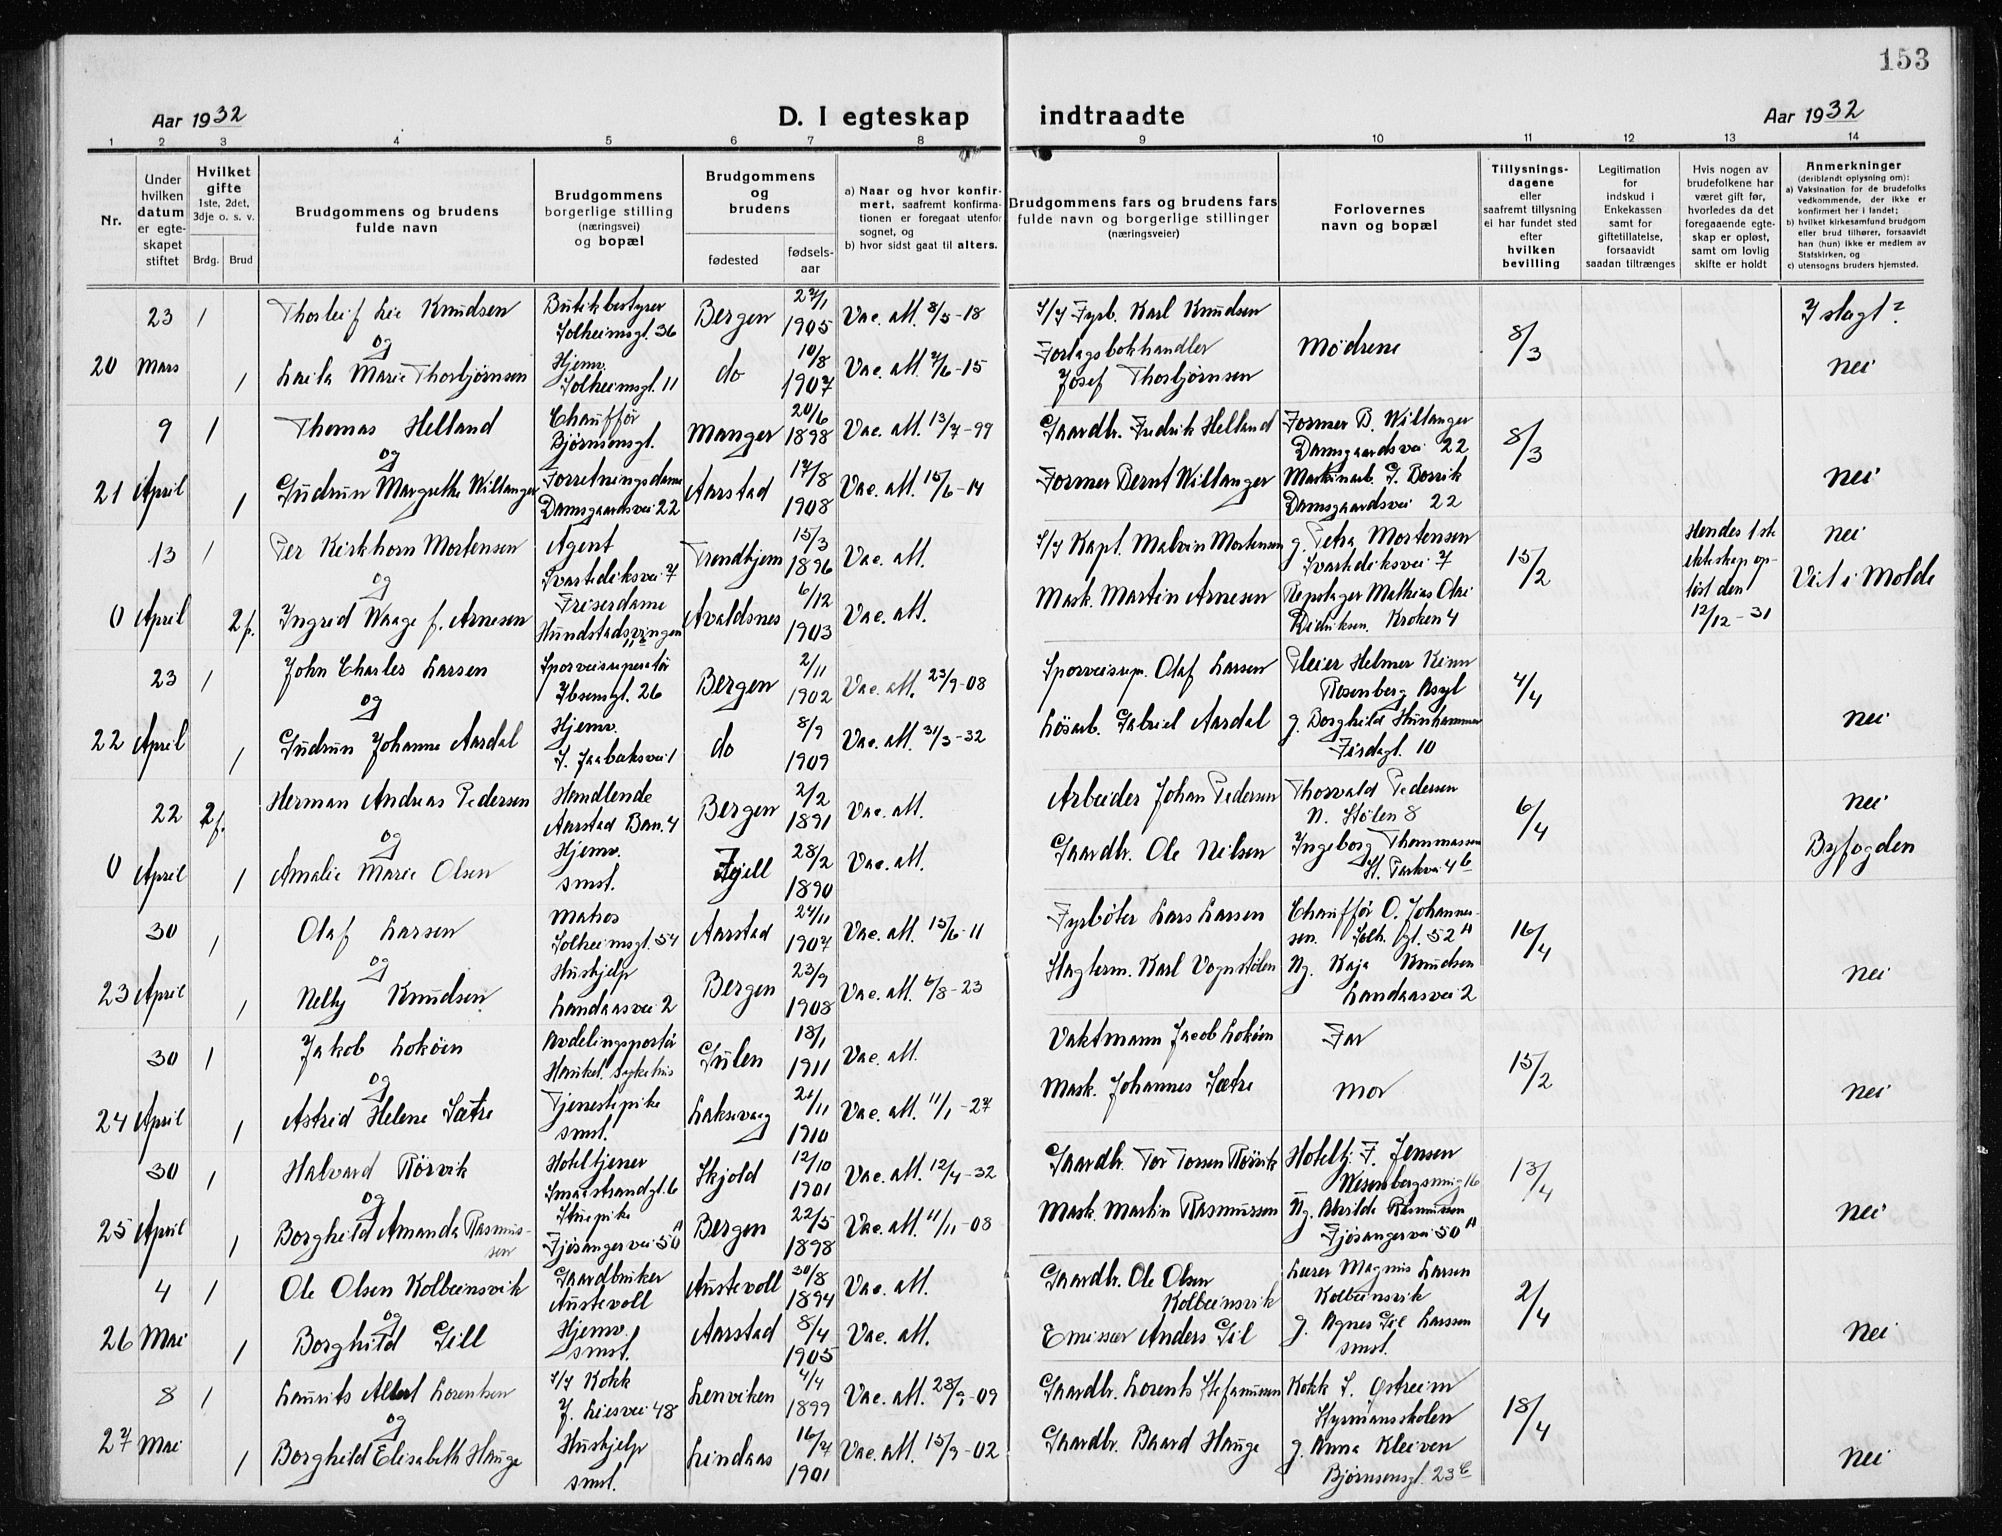 153
Aar 1932
D. I egteskap indtraadte
Aar 1932
1 2 3 4 5 6 7 8 9 10 11 12 13 14
Nr.
Under hvilken datum er egteskapet stiftet
Hvilket gifte 1ste, 2det, 3dje o. s. v.
Brdg. Brud
Brudgommens og brudens fulde navn
Brudgommens borgerlige stilling (næringsvei) og bopæl
Brudgommens og brudens
fødested
fødsels-aar
a) Naar og hvor konfir-
mert, saafremt konfirma-
tionen er foregaat utenfor
sognet, og
b) hvor sidst gaat til alters.
Brudgommens fars og brudens fars
fulde navn og borgerlige stillinger
(næringsveier)
Forlovernes
navn og bopæl
Tillysnings-
dagene
eller
saafremt tillysning
ei har fundet sted
efter
hvilken
bevilling
Legitimation
for
indskud i
Enkekassen
samt for
giftetillatelse,
forsaavidt
saadan tiltrænges
Hvis nogen av
brudefolkene har
været gift før,
hvorledes da det
foregaaende egte-
skap er opløst,
samt om lovlig
skifte er holdt
Anmerkninger
(deriblandt oplysning om):
a) Vaksination for de brudefolks
vedkommende, der ikke er
konfirmert her i landet;
b) hvilket kirkesamfund brudgom
eller brud tilhører, forsaavidt
han (hun) ikke er medlem av
Statskirken, og
c) utensogns bruders hjemsted.
23 1 Thorleif Lie Knudsen Butikbestyrer Solheimsgt. 36 Bergen 27/1 1905 Vac. att. 8/5-18 S/S Fyrb. Karl Knudsen Mødrene 8/3 I slagt?
og
20 Mars 1 Laila Marie Thorbjørnsen Hjemv. Solheimsgt. 11 do 10/8 1907 Vac. att. 2/6-15 Forlagsbokhandler Josef Thorbjørnsen nei
9 1 Thomas Helland Chauffør Bjørnsonsgt. Manger 20/6 1898 Vac. att. 13/7-99 Gaardbr. Fredrik Helland Former B. Wiltanger Damsgaardsvei 22 8/3
og
21 April 1 Gudrun Margrethe Wiltanger Forretningsdame Damsgaardsvei 22 Aarstad 17/8 1908 Vac. att. 15/6-14 Former Bernt Wiltanger Maskinarb. J. Dorvik Damsgaardsvei 22 nei
13 1 Per Kirkhorn Mortensen Agent Svartediksvei 7 Trondhjem 15/3 1896 Vac. att. S/S Kapt. Malvin Mortensen g. Petra Mortensen Svartediksvei 7 15/2 Hendes 1ste ekteskap opløst den 12/12-31 nei
og
0 April 2 f. Ingrid Waage f. Arnesen Friserdame Hundstadsvingen Avaldsnes 6/12 1903 Vac. att. Mask. Martin Arnesen Repslager Mathias Olai Didriksen. Kroken 4 Viet i Molde
23 1 John Charles Larsen Sporveisreparatør Ibsensgt. 26 Bergen 2/11 1902 Vac. att. 23/9-08 Sporveisrep. Olaf Larsen Pleier Helmer Kinn Rosenberg Asyl 4/4
og
22 April 1 Gudrun Johanne Aardal Hjemv. J. Jarbakksvei 1 do 8/9 1909 Vac. att. 31/3-32 Løsarb. Gabriel Aardal g. Borghild Hunhammer Firdagt. 10 nei
22 2 f. Herman Andreas Pedersen Handlende Aarstad Ban. 4 Bergen 2/2 1891 Vac. att. Arbeider Johan Pedersen Thorvald Pedersen N. Stølen 8 6/4 nei
og
0 April 1 Amalie Marie Olsen Hjemv. smst. Fjell 28/2 1890 Vac. att. Gaardbr. Ole Nilsen Ingeborg Thommassen St. Parkvei 4 b Byfogden
30 1 Olaf Larsen Matros Solheimsgt. 54 Aarstad 24/11 1907 Vac. att. 15/6-11 Fyrbøter Lars Larsen Chauffør O. Johannessen. Solh. gt. 52 A 16/4
og
23 April 1 Nelly Knudsen Hushjelp Landaasvei 2 Bergen 23/9 1908 Vac. att. 6/8-23 Slagterm. Karl Vognstølen Ug. Kaja Knudsen Landaasvei 2 nei
30 1 Jakob Lokøen Avdelingsportør Haukel. sykehus Gulen 18/1 1911 Vac. att. Vaktmann Jacob Lokøen Far 15/2
og
24 April 1 Astrid Helene Sætre Tjenestepike smst. Laksevaag 21/11 1910 Vac. att. 11/1-27 Mask. Johannes Sætre Mor nei
30 1 Halvard Rørvik Hoteltjener Smaastrandgt. 6 Skjold 12/10 1901 Vac. att. 12/4-32 Gaardbr. Tor Torsen Rørvik Hoteltj. F. Jensen Wesenbergsmug 16 13/4
og
25 April 1 Borghild Amanda Rasmussen Stuepike Fjøsangervei 50 A Bergen 22/5 1898 Vac. att. 11/11-08 Mask. Martin Rasmussen Ug. Alvilde Rasmussen Fjøsangervei 50 A nei
4 1 Ole Olsen Kolbeinsvik Gaardbruker Austevoll Austevoll 30/8 1894 Vac. att. Gaardbr. Ole Olsen Kolbeinsvik Lærer Magnus Larsen Kolbeinsvik 2/4
og
26 Mai 1 Borghild Gill Hjemv. smst. Aarstad 8/4 1905 Vac. att. Emissær Anders Gil g. Agnes Gil Larssen smst. nei
8 1 Laurits Albert Lorentsen S/S Kokk J. Liesvei 48 Lenviken 4/4 1899 Vac. att. 28/9-09 Gaardbr. Lorents Stefanussen Kokk S. Østreim Styrmansskolen 18/4
og
27 Mai 1 Borghild Elisabeth Hauge Hushjelp smst. Lindaas 16/7 1901 Vac. att. 15/9-02 Gaardbr. Baard Hauge g. Anna Kleiven Bjørnsonsgt. 23 C nei